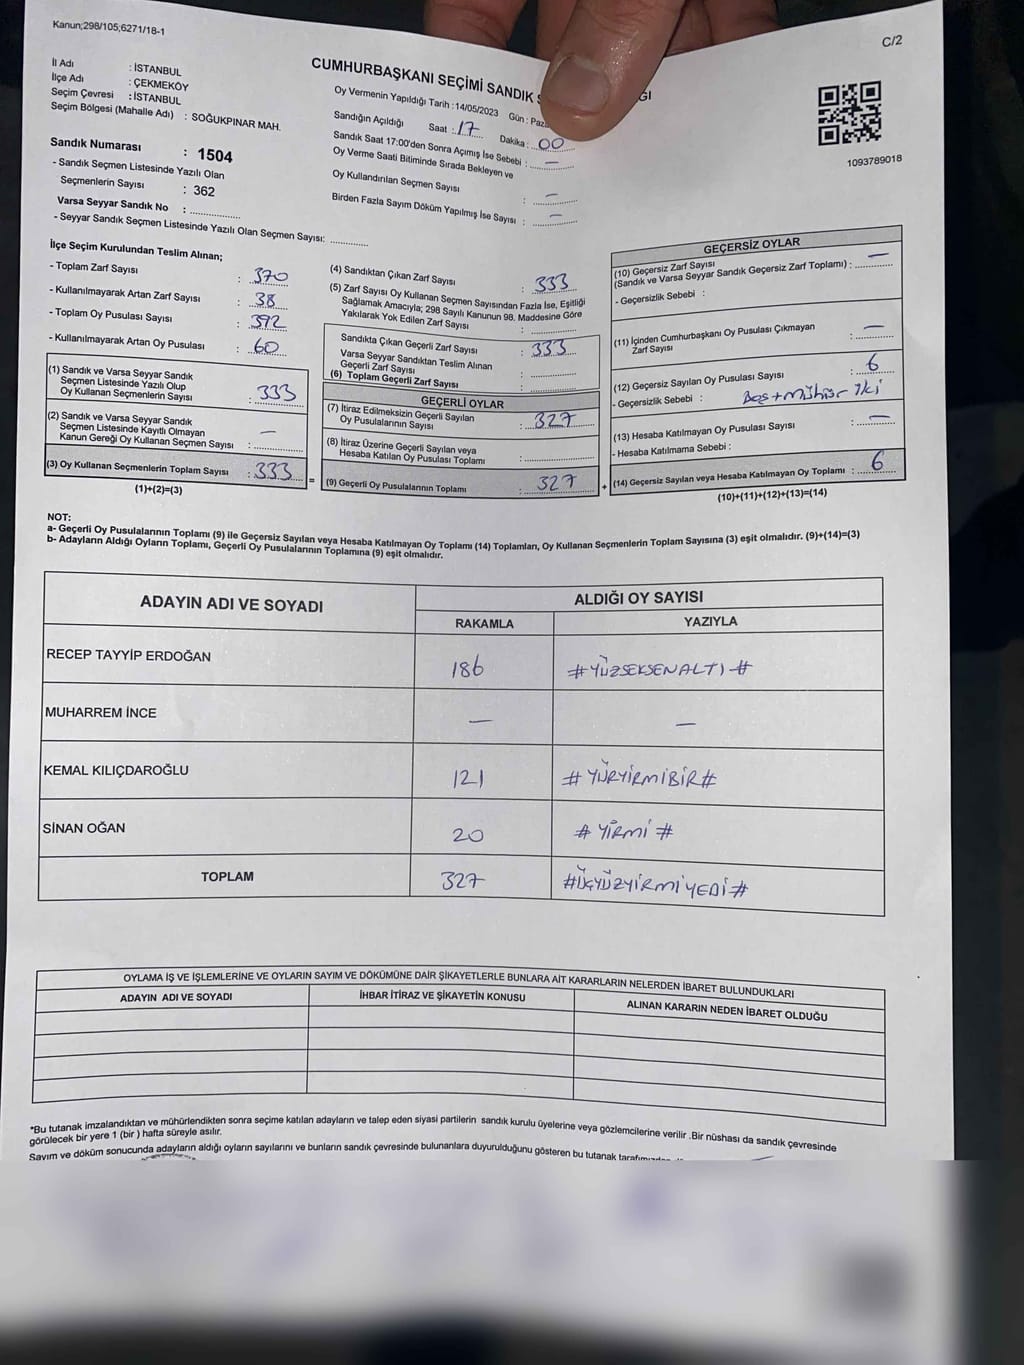 Kanun;298/105;6271/18-1
C/2
İl Adı : İSTANBUL
İlçe Adı : ÇEKMEKÖY
Seçim Çevresi : İSTANBUL
Seçim Bölgesi (Mahalle Adı) : SOĞUKPINAR MAH.
Sandık Numarası : 1504
- Sandık Seçmen Listesinde Yazılı Olan
Seçmenlerin Sayısı : 362
Varsa Seyyar Sandık No :
- Seyyar Sandık Seçmen Listesinde Yazılı Olan Seçmen Sayısı:
CUMHURBAŞKANI SEÇİMİ SANDIK
Oy Vermenin Yapıldığı Tarih : 14/05/2023 Gün :
Sandığın Açıldığı Saat : 17 Dakika : 00
Sandık Saat 17:00'den Sonra Açımış İse Sebebi : —
Oy Verme Saati Bitiminde Sırada Bekleyen ve
Oy Kullandırılan Seçmen Sayısı : —
Birden Fazla Sayım Döküm Yapılmış İse Sayısı : —
1093789018
İlçe Seçim Kurulundan Teslim Alınan;
- Toplam Zarf Sayısı : 370
- Kullanılmayarak Artan Zarf Sayısı : 38
- Toplam Oy Pusulası Sayısı : 392
- Kullanılmayarak Artan Oy Pusulası : 60
(1) Sandık ve Varsa Seyyar Sandık
Seçmen Listesinde Yazılı Olup
Oy Kullanan Seçmenlerin Sayısı : 333
(2) Sandık ve Varsa Seyyar Sandık
Seçmen Listesinde Kayıtlı Olmayan
Kanun Gereği Oy Kullanan Seçmen Sayısı : —
(3) Oy Kullanan Seçmenlerin Toplam Sayısı : 333
(1)+(2)=(3)
(4) Sandıktan Çıkan Zarf Sayısı : 333
(5) Zarf Sayısı Oy Kullanan Seçmen Sayısından Fazla İse, Eşitliği
Sağlamak Amacıyla; 298 Sayılı Kanunun 98. Maddesine Göre
Yakılarak Yok Edilen Zarf Sayısı :
Sandıkta Çıkan Geçerli Zarf Sayısı : 333
Varsa Seyyar Sandıktan Teslim Alınan
Geçerli Zarf Sayısı :
(6) Toplam Geçerli Zarf Sayısı :
GEÇERLİ OYLAR
(7) İtiraz Edilmeksizin Geçerli Sayılan
Oy Pusulalarının Sayısı : 327
(8) İtiraz Üzerine Geçerli Sayılan veya
Hesaba Katılan Oy Pusulası Toplamı :
= (9) Geçerli Oy Pusulalarının Toplamı : 327
GEÇERSİZ OYLAR
(10) Geçersiz Zarf Sayısı
(Sandık ve Varsa Seyyar Sandık Geçersiz Zarf Toplamı) : —
- Geçersizlik Sebebi :
(11) İçinden Cumhurbaşkanı Oy Pusulası Çıkmayan
Zarf Sayısı : —
(12) Geçersiz Sayılan Oy Pusulası Sayısı : 6
- Geçersizlik Sebebi : Boş+mühür İki
(13) Hesaba Katılmayan Oy Pusulası Sayısı : —
- Hesaba Katılmama Sebebi :
+ (14) Geçersiz Sayılan veya Hesaba Katılmayan Oy Toplamı : 6
(10)+(11)+(12)+(13)=(14)
NOT:
a- Geçerli Oy Pusulalarının Toplamı (9) ile Geçersiz Sayılan veya Hesaba Katılmayan Oy Toplamı (14) Toplamları, Oy Kullanan Seçmenlerin Toplam Sayısına (3) eşit olmalıdır. (9)+(14)=(3)
b- Adayların Aldığı Oyların Toplamı, Geçerli Oy Pusulalarının Toplamına (9) eşit olmalıdır.
ADAYIN ADI VE SOYADI ALDIĞI OY SAYISI
RAKAMLA YAZIYLA
RECEP TAYYİP ERDOĞAN 186 #YÜZSEKSENALTI#
MUHARREM İNCE — —
KEMAL KILIÇDAROĞLU 121 #YÜRYİRMİBİR#
SİNAN OĞAN 20 #YİRMİ#
TOPLAM 327 #ÜÇYÜZYİRMİYEDİ#
OYLAMA İŞ VE İŞLEMLERİNE VE OYLARIN SAYIM VE DÖKÜMÜNE DAİR ŞİKAYETLERLE BUNLARA AİT KARARLARIN NELERDEN İBARET BULUNDUKLARI
ADAYIN ADI VE SOYADI İHBAR İTİRAZ VE ŞİKAYETİN KONUSU ALINAN KARARIN NEDEN İBARET OLDUĞU
*Bu tutanak imzalandıktan ve mühürlendikten sonra seçime katılan adayların ve talep eden siyasi partilerin sandık kurulu üyelerine veya gözlemcilerine verilir .Bir nüshası da sandık çevresinde
görülecek bir yere 1 (bir ) hafta süreyle asılır.
Sayım ve döküm sonucunda adayların aldığı oyların sayılarını ve bunların sandık çevresinde bulunanlara duyurulduğunu gösteren bu tutanak